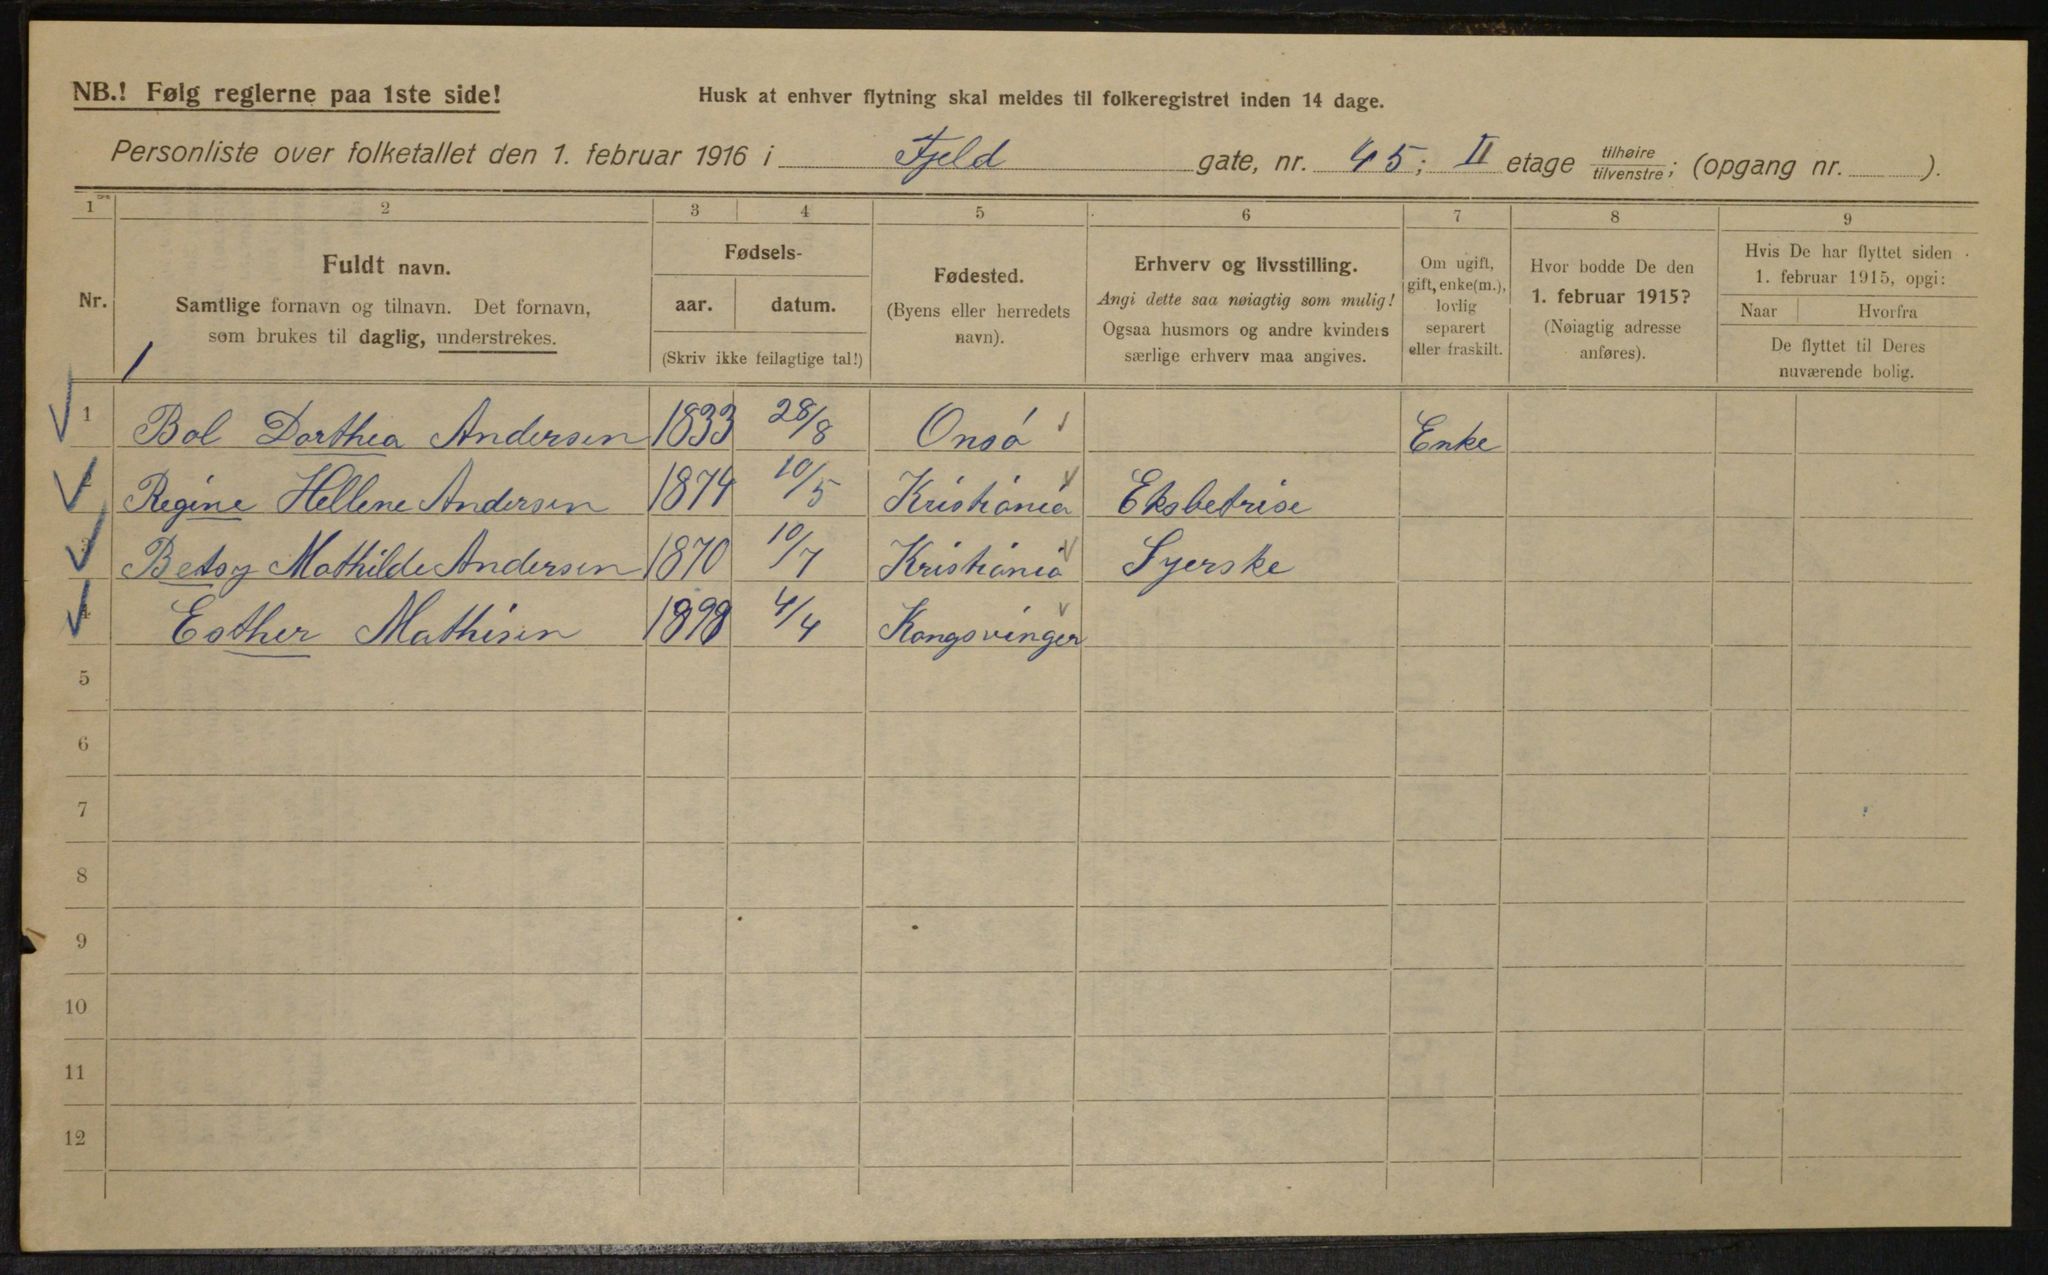 NB.! Følg reglerne paa 1ste side!
Husk at enhver flytning skal meldes til folkeregistret inden 14 dage.
Personliste over folketallet den 1. februar 1916 i Fjeld gate, nr. 45; II etage tilhøire/tilvenstre; (opgang nr. ).
1 2 3 4 5 6 7 8 9
Nr.
Fuldt navn.
Samtlige fornavn og tilnavn. Det fornavn,
som brukes til daglig, understrekes.
1
Fødsels-
aar. datum.
(Skriv ikke feilagtige tal!)
Fødested.
(Byens eller herredets
navn).
Erhverv og livsstilling.
Angi dette saa nøiagtig som mulig!
Ogsaa husmors og andre kvinders
særlige erhverv maa angives.
Om ugift,
gift, enke(m.),
lovlig
separert
eller fraskilt.
Hvor bodde De den
1. februar 1915?
(Nøiagtig adresse
anføres).
Hvis De har flyttet siden
1. februar 1915, opgi:
Naar Hvorfra
De flyttet til Deres
nuværende bolig.
1 Bol Dorthea Andersen 1833 28/8 Onsø Enke
2 Regine Hellene Andersen 1874 10/5 Kristiania Eksbetrise
3 Betsy Mathilde Andersen 1870 10/7 Kristiania Syerske
4 Esther Mathisen 1898 4/4 Kongsvinger
5
6
7
8
9
10
11
12